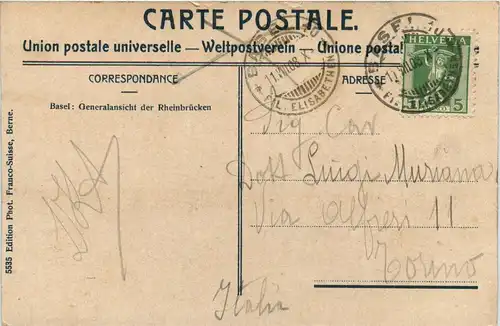 CARTE POSTALE.
Union postale universelle. — Weltpostverein. — Unione posta
CORRESPONDANCE
ADRESSE
Basel: Generalansicht der Rheinbrücken
BASEL
11.VII.08.XI
FIL. ELISABETHEN
BASEL
HELVETIA
5
Sig. Cav
Dott Luigi Muriana
Via Alfieri 11
Torino
Italia
5535 Edition Phot. Franco-Suisse, Berne.